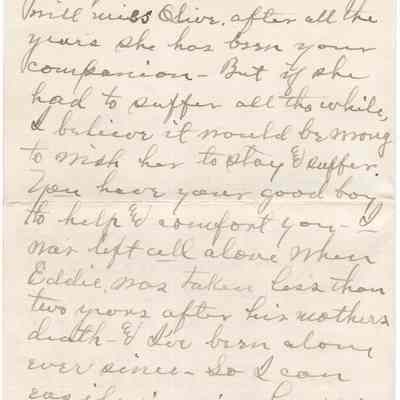 will miss Olive, after all the
years she has been your
companion - But if she
had to suffer all the while,
I believe it would be wrong
to wish her to stay & suffer.
You have your good boy
to help & comfort you - I
was left all alone when
Eddie, was taken less than
two years after his mothers
death - & I've been alone
ever since - So I can
easily